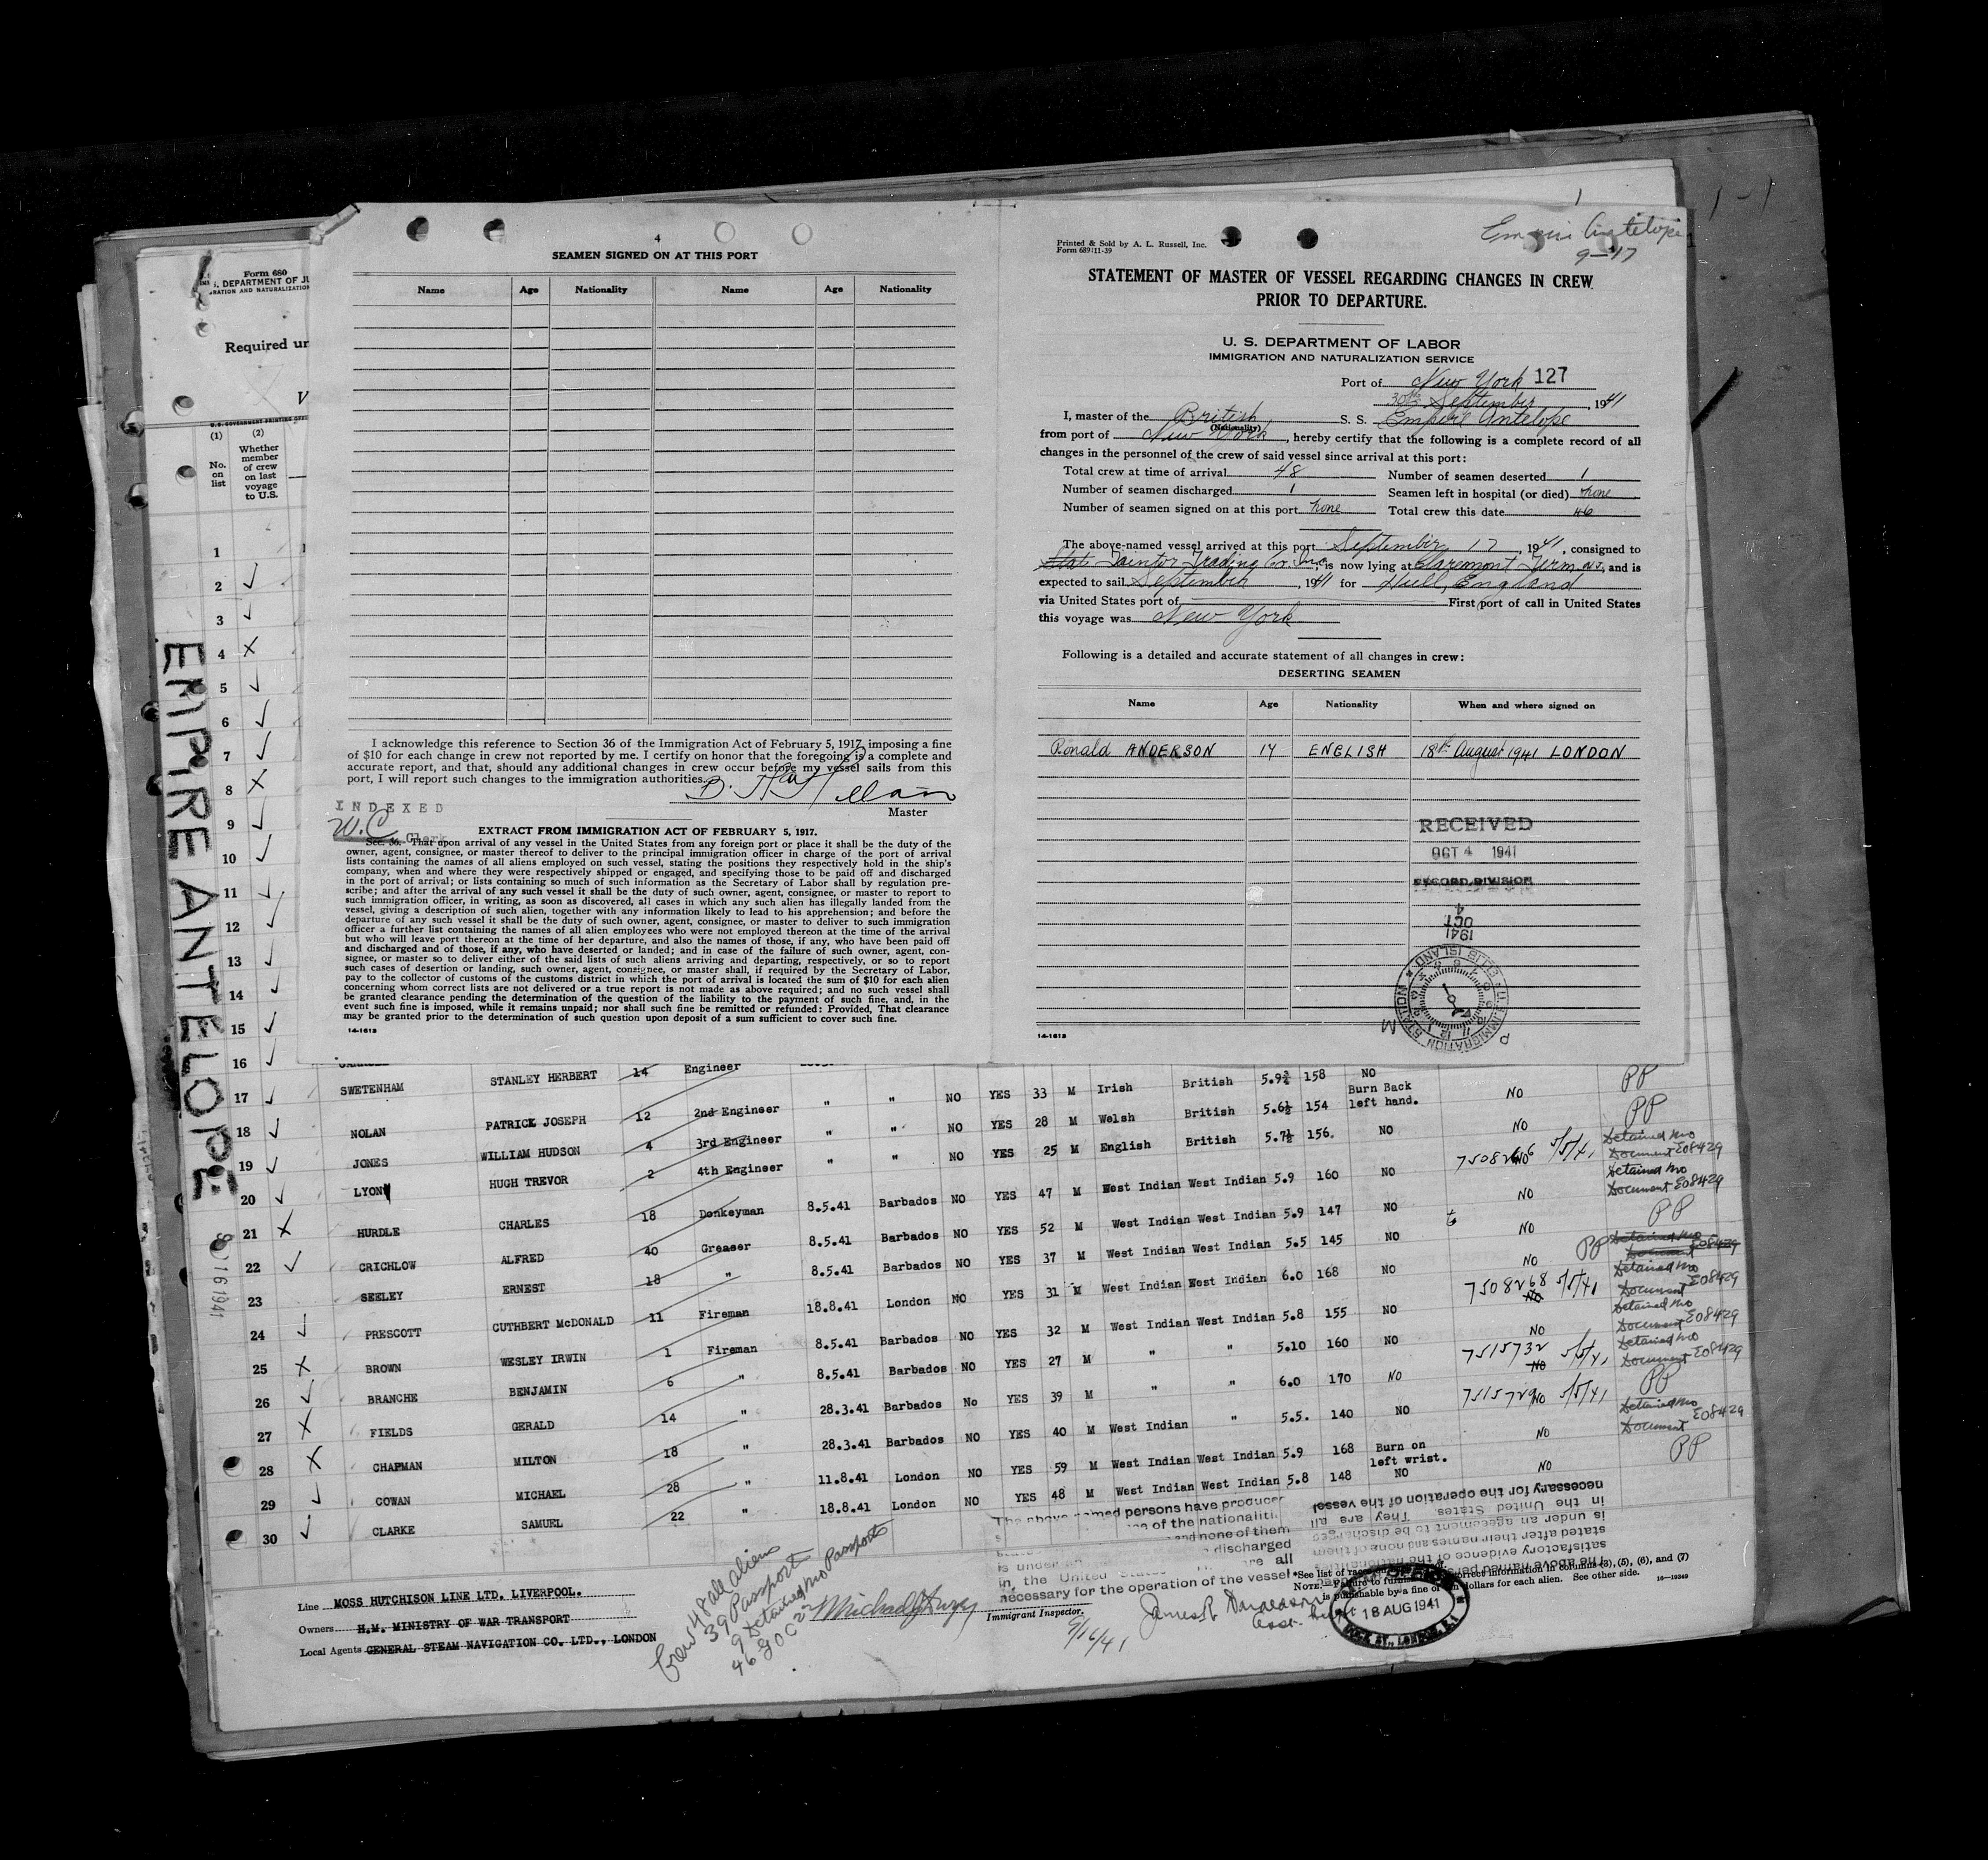 Form 680
S. DEPARTMENT OF JU
RATION AND NATURALIZATION
Required un
(1) (2)
No. on list
Whether member of crew on last voyage to U.S.
1
2
3
4 X
5
6
7
8 X
9
10
11
12
13
14
15
16
EMPIRE ANTELOPE
4
SEAMEN SIGNED ON AT THIS PORT
Name Age Nationality Name Age Nationality
I acknowledge this reference to Section 36 of the Immigration Act of February 5, 1917, imposing a fine
of $10 for each change in crew not reported by me. I certify on honor that the foregoing is a complete and
accurate report, and that, should any additional changes in crew occur before my vessel sails from this
port, I will report such changes to the immigration authorities.
Master
INDEXED
W.C. Clerk
EXTRACT FROM IMMIGRATION ACT OF FEBRUARY 5, 1917.
Sec. 36. That upon arrival of any vessel in the United States from any foreign port or place it shall be the duty of the
owner, agent, consignee, or master thereof to deliver to the principal immigration officer in charge of the port of arrival
lists containing the names of all aliens employed on such vessel, stating the positions they respectively hold in the ship's
company, when and where they were respectively shipped or engaged, and specifying those to be paid off and discharged
in the port of arrival; or lists containing so much of such information as the Secretary of Labor shall by regulation pre-
scribe; and after the arrival of any such vessel it shall be the duty of such owner, agent, consignee, or master to report to
such immigration officer, in writing, as soon as discovered, all cases in which any such alien has illegally landed from the
vessel, giving a description of such alien, together with any information likely to lead to his apprehension; and before the
departure of any such vessel it shall be the duty of such owner, agent, consignee, or master to deliver to such immigration
officer a further list containing the names of all alien employees who were not employed thereon at the time of the arrival
but who will leave port thereon at the time of her departure, and also the names of those, if any, who have been paid off
and discharged and of those, if any, who have deserted or landed; and in case of the failure of such owner, agent, con-
signee, or master so to deliver either of the said lists of such aliens arriving and departing, respectively, or so to report
such cases of desertion or landing, such owner, agent, consignee, or master shall, if required by the Secretary of Labor,
pay to the collector of customs of the customs district in which the port of arrival is located the sum of $10 for each alien
concerning whom correct lists are not delivered or a true report is not made as above required; and no such vessel shall
be granted clearance pending the determination of the question of the liability to the payment of such fine, and, in the
event such fine is imposed, while it remains unpaid; nor shall such fine be remitted or refunded: Provided, That clearance
may be granted prior to the determination of such question upon deposit of a sum sufficient to cover such fine.
14-1613
Empire Antelope
9-17
Printed & Sold by A. L. Russell, Inc.
Form 689:11-39
STATEMENT OF MASTER OF VESSEL REGARDING CHANGES IN CREW
PRIOR TO DEPARTURE.
U. S. DEPARTMENT OF LABOR
IMMIGRATION AND NATURALIZATION SERVICE
Port of New York 127
30th September, 1941
I, master of the British S. S. Empire Antelope
(Nationality)
from port of New York, hereby certify that the following is a complete record of all
changes in the personnel of the crew of said vessel since arrival at this port:
Total crew at time of arrival 48 Number of seamen deserted 1
Number of seamen discharged 1 Seamen left in hospital (or died) none
Number of seamen signed on at this port none Total crew this date 46
The above-named vessel arrived at this port September 17, 1941, consigned to
Stat Taintor Trading Co. Inc, is now lying at Claremont Term. N.J., and is
expected to sail September, 1941 for Hull, England
via United States port of First port of call in United States
this voyage was New York
Following is a detailed and accurate statement of all changes in crew:
DESERTING SEAMEN
Name Age Nationality When and where signed on
Ronald ANDERSON 17 ENGLISH 18th August 1941 LONDON
RECEIVED
OCT 4 1941
RECORD DIVISION
1941 OCT 4
U.S. IMMIGRATION STATION ELLIS ISLAND
P M
14-1613
17 SWETENHAM STANLEY HERBERT 14 Engineer NO YES 33 M Irish British 5.9¾ 158 NO PP
18 NOLAN PATRICK JOSEPH 12 2nd Engineer " " NO YES 28 M Welsh British 5.6½ 154 Burn Back left hand. NO PP
19 JONES WILLIAM HUDSON 4 3rd Engineer " " NO YES 25 M English British 5.7½ 156. NO NO
20 LYON HUGH TREVOR 2 4th Engineer " "
21 X HURDLE CHARLES 18 Donkeyman 8.5.41 Barbados NO YES 47 M West Indian West Indian 5.9 160 NO 5/5/41 Detained No Document E08429
22 CRICHLOW ALFRED 40 Greaser 8.5.41 Barbados NO YES 52 M West Indian West Indian 5.9 147 NO NO Detained No Document E08429
23 SEELEY ERNEST 18 " 8.5.41 Barbados NO YES 37 M West Indian West Indian 5.5 145 NO NO PP
24 PRESCOTT CUTHBERT McDONALD 11 Fireman 18.8.41 London NO YES 31 M West Indian West Indian 6.0 168 NO NO PP Detained No Document E08429
25 X BROWN WESLEY IRWIN 1 Fireman 8.5.41 Barbados NO YES 32 M West Indian West Indian 5.8 155 NO 7508268 NO 5/5/41 Detained No Document E08429
26 BRANCHE BENJAMIN 6 " 8.5.41 Barbados NO YES 27 M " " 5.10 160 NO NO Detained No Document E08429
27 X FIELDS GERALD 14 " 28.3.41 Barbados No YES 39 M " " 6.0 170 NO 7515732 NO 5/5/41 Detained No Document E08429
28 X CHAPMAN MILTON 18 " 28.3.41 Barbados NO YES 40 M West Indian " 5.5. 140 NO 7515729 NO 5/5/41 PP
29 COWAN MICHAEL 28 " 11.8.41 London NO YES 59 M West Indian West Indian 5.9 168 Burn on left wrist. NO Detained No Document E08429
30 CLARKE SAMUEL 22 " 18.8.41 London NO YES 48 M West Indian West Indian 5.8 148 NO NO PP
Line MOSS HUTCHISON LINE LTD. LIVERPOOL.
Owners H.M. MINISTRY OF WAR TRANSPORT
Local Agents GENERAL STEAM NAVIGATION CO. LTD., LONDON
Crew 48 all aliens
39 Passport
9 Detained No Passports
The above named persons have produced
of the nationalities
and none of them
discharged
in the United States are all
necessary for the operation of the vessel
Immigrant Inspector.
9/16/41
The above named persons
satisfactory evidence of the nationalities
stated after their names and none of them
is under an agreement to be discharged
in the United States. They are all
necessary for the operation of the vessel
*See list of races
NOTE.—Failure to furnish correct information in columns (3), (5), (6), and (7)
is punishable by a fine of ten dollars for each alien. See other side.
16—19349
18 AUG 1941
DOCK ST., LONDON, E.1